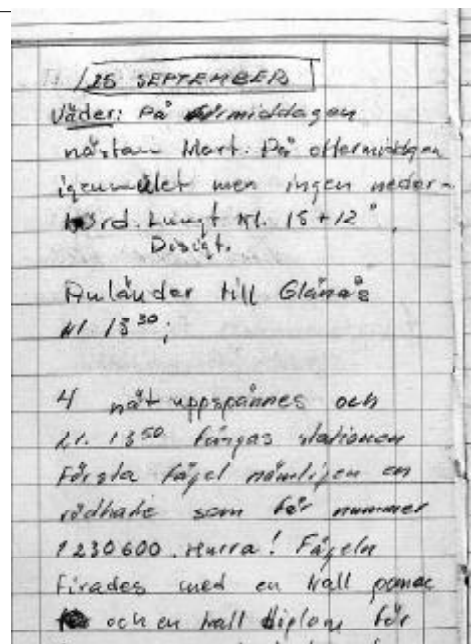 25 SEPTEMBER
Väder: På förmiddagen
nästan klart. På eftermiddagen
igenmulet men ingen neder-
börd. Lungt kl. 15 +12°,
Disigt.
Anländer till Glänås
kl. 13 30;
4 nät uppspännes och
kl. 13 50 fångas stationen
första fågel nämligen en
rödhake som får nummer
1230600. Hurra! Fågeln
firades med en kall pomac
och en kall diplom för